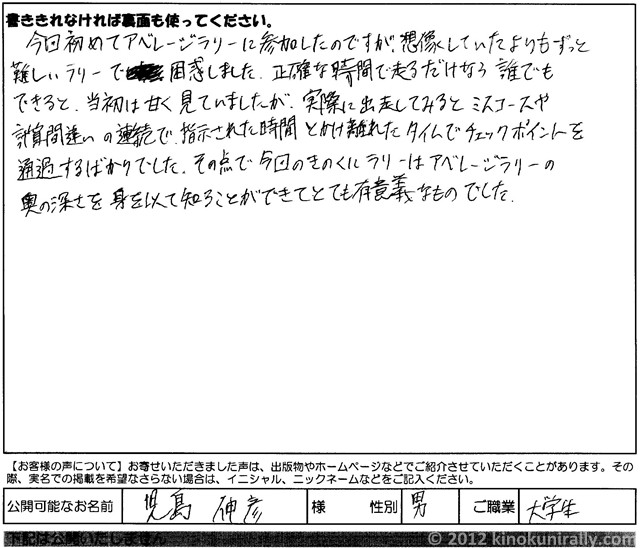 書ききれなければ裏面も使ってください。
今回初めてアベレージラリーに参加したのですが、想像していたよりもずっと
難しいラリーで困惑しました。正確な時間で走るだけなら誰でも
できると、当初は甘く見ていましたが、実際に出走してみるとミスコースや
計算間違いの連続で、指示された時間とかけ離れたタイムでチェックポイントを
通過するばかりでした。その点で今回のきのくにラリーはアベレージラリーの
奥の深さを身を以て知ることができてとても有意義なものでした。
【お客様の声について】お寄せいただきました声は、出版物やホームページなどでご紹介させていただくことがあります。その
際、実名での掲載を希望なさらない場合は、イニシャル、ニックネームなどをご記入ください。
公開可能なお名前 児島 伸彦 様 性別 男 ご職業 大学生
下記は公開いたしません
© 2012 kinokunirally.com